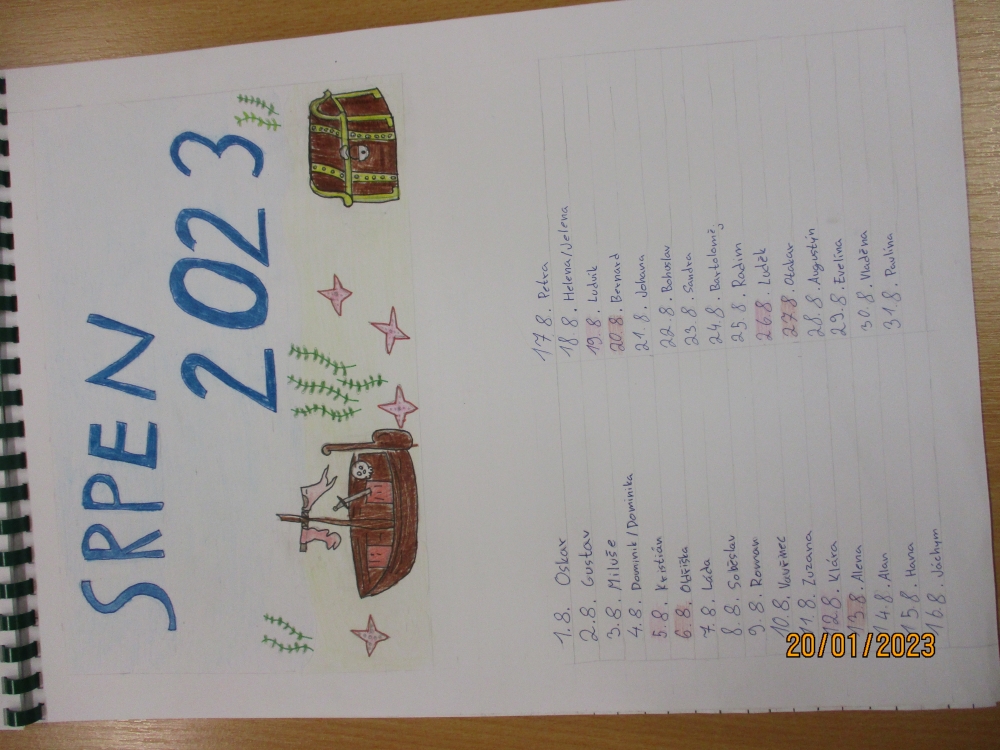 SRPEN
2023
1.8. Oskar
2.8. Gustav
3.8. Miluše
4.8. Dominik/Dominika
5.8. Kristián
6.8. Oldřiška
7.8. Lada
8.8. Soběslav
9.8. Roman
10.8. Vavřinec
11.8. Zuzana
12.8. Klára
13.8. Alena
14.8. Alan
15.8. Hana
16.8. Jáchym
17.8. Petra
18.8. Helena/Jelena
19.8. Ludvik
20.8. Bernard
21.8. Johana
22.8. Bohuslav
23.8. Sandra
24.8. Bartoloměj
25.8. Radim
26.8. Luděk
27.8. Otakar
28.8. Augustýn
29.8. Evelína
30.8. Vladěna
31.8. Pavlína
20/01/2023